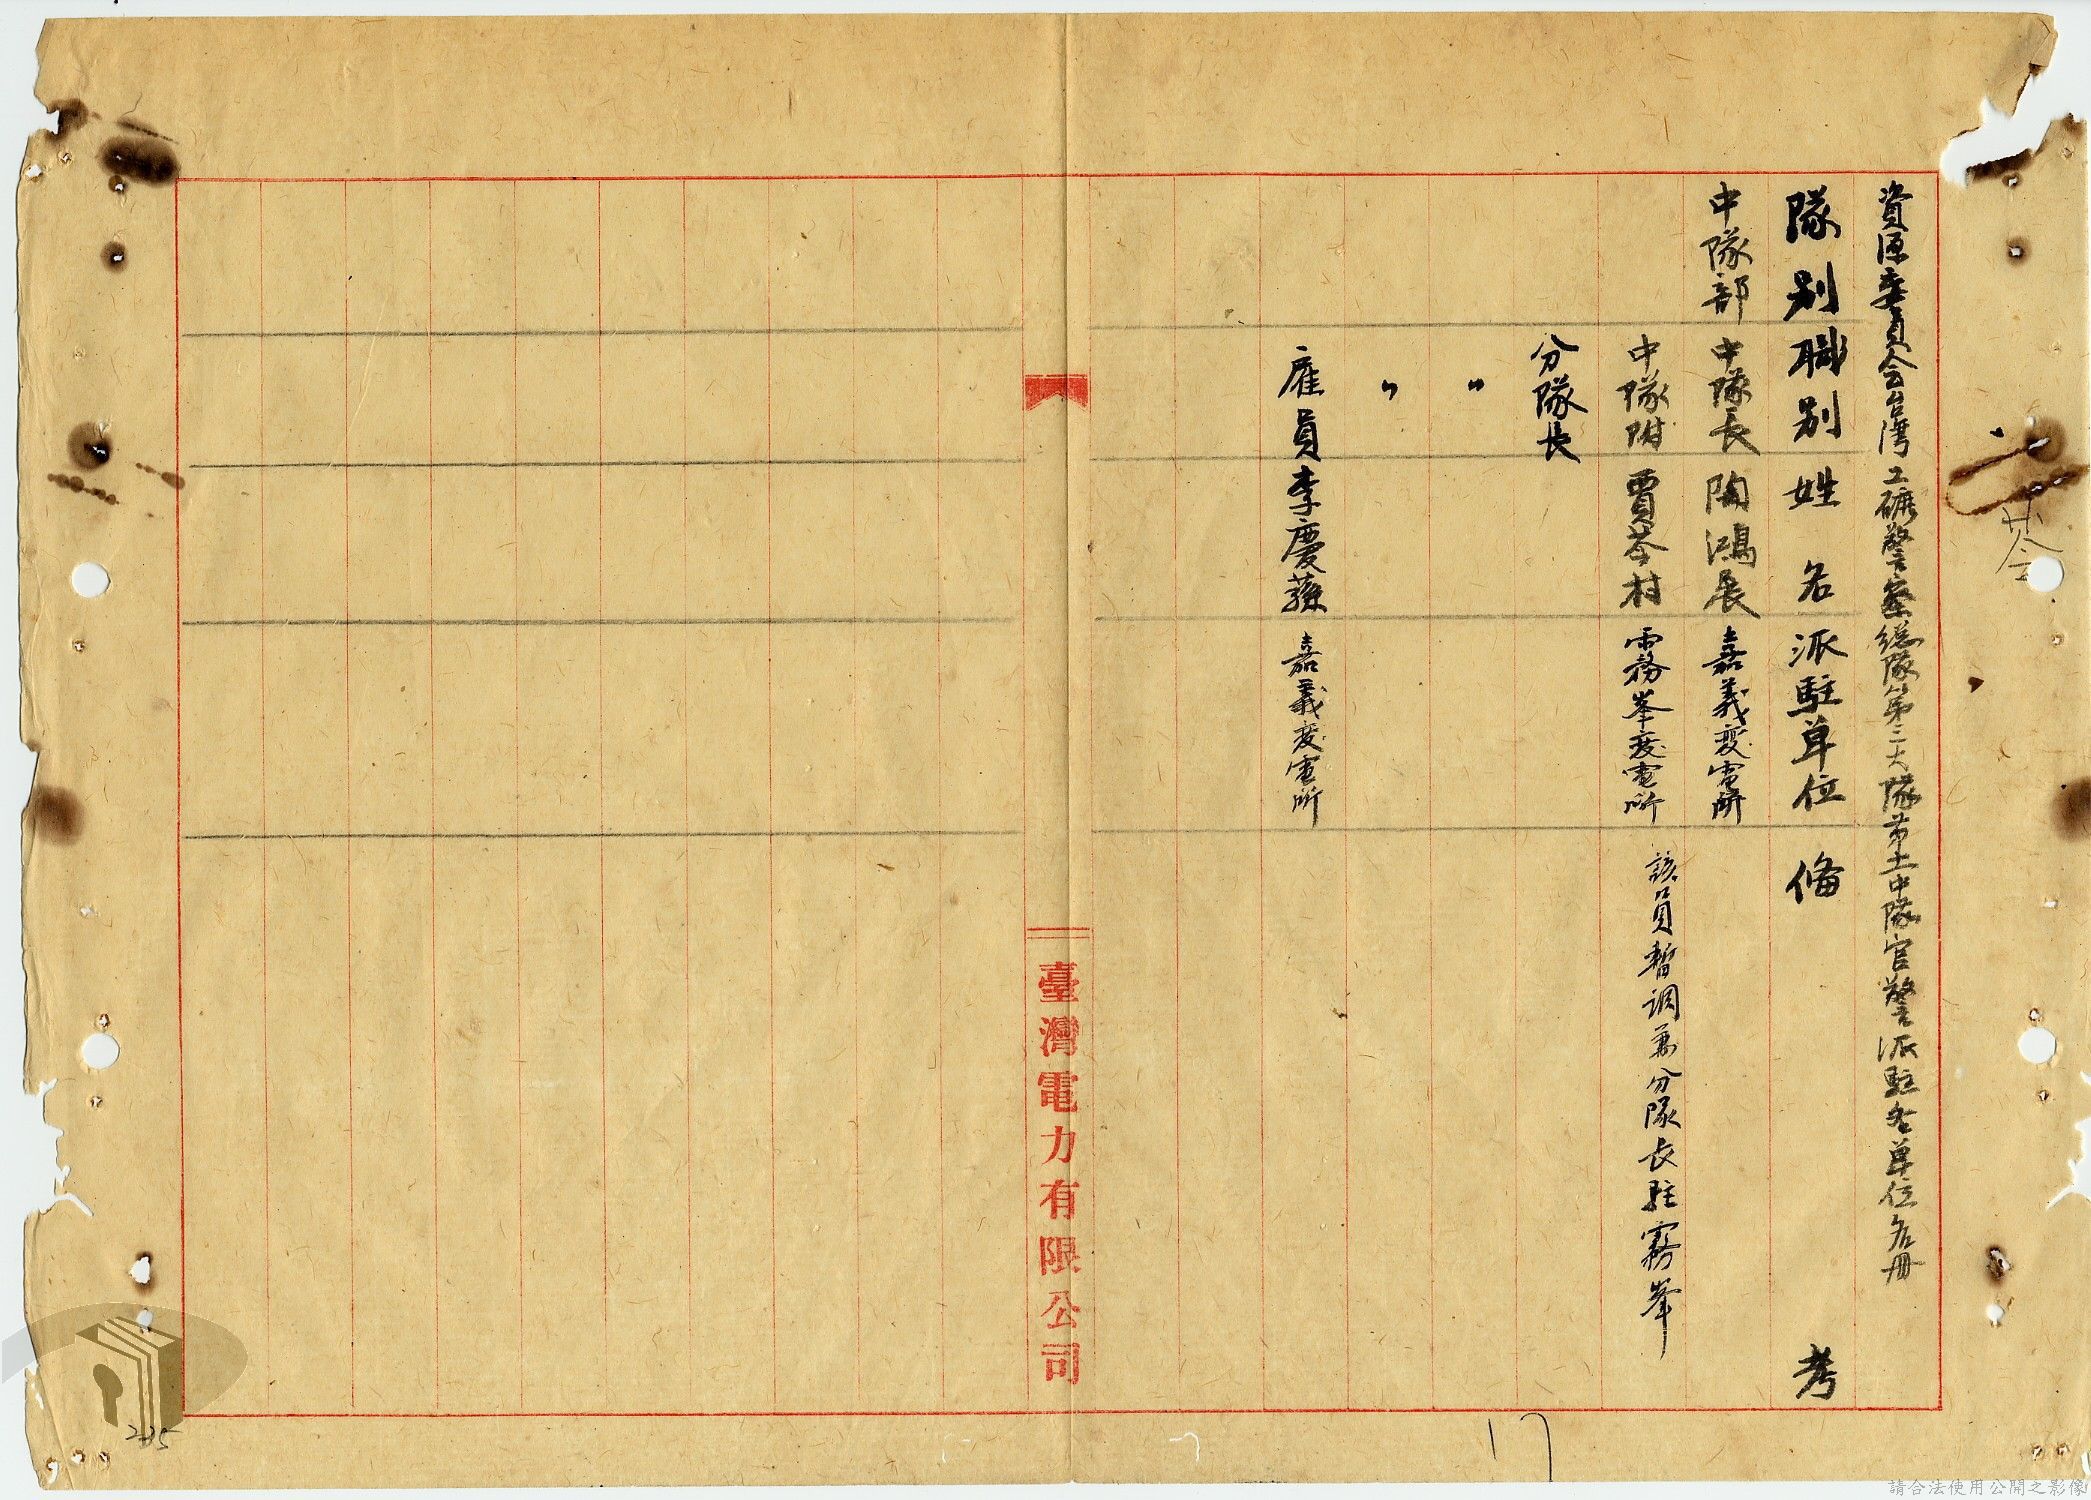 資源委員会台湾工礦警察総隊第二大隊第十一中隊官警派駐各單位名册
隊別 職別 姓名 派駐單位 備考
中隊部 中隊長 陶鴻展 嘉義変電所
中隊附 賈苓村 霧峯変電所 該員暫調兼分隊長駐霧峯
分隊長
〃
〃
雇員 李慶蓀 嘉義変電所
臺灣電力有限公司
17
205
請合法使用公開之影像